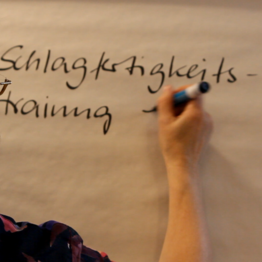 Schlagfertigkeits-
training